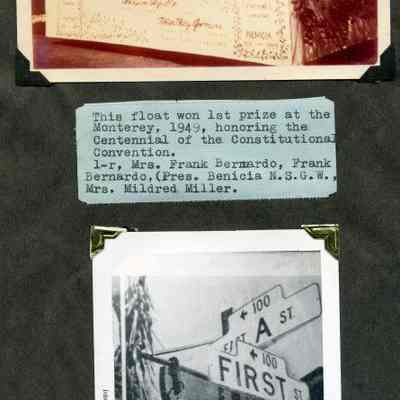 BENICIA
This float won 1st prize at the
Monterey, 1949, honoring the
Centennial of the Constitutional
Convention.
l-r, Mrs. Frank Bernardo, Frank
Bernardo,(Pres. Benicia N.S.G.W.,
Mrs. Mildred Miller.
← 100
A ST.
← 100
FIRST ST